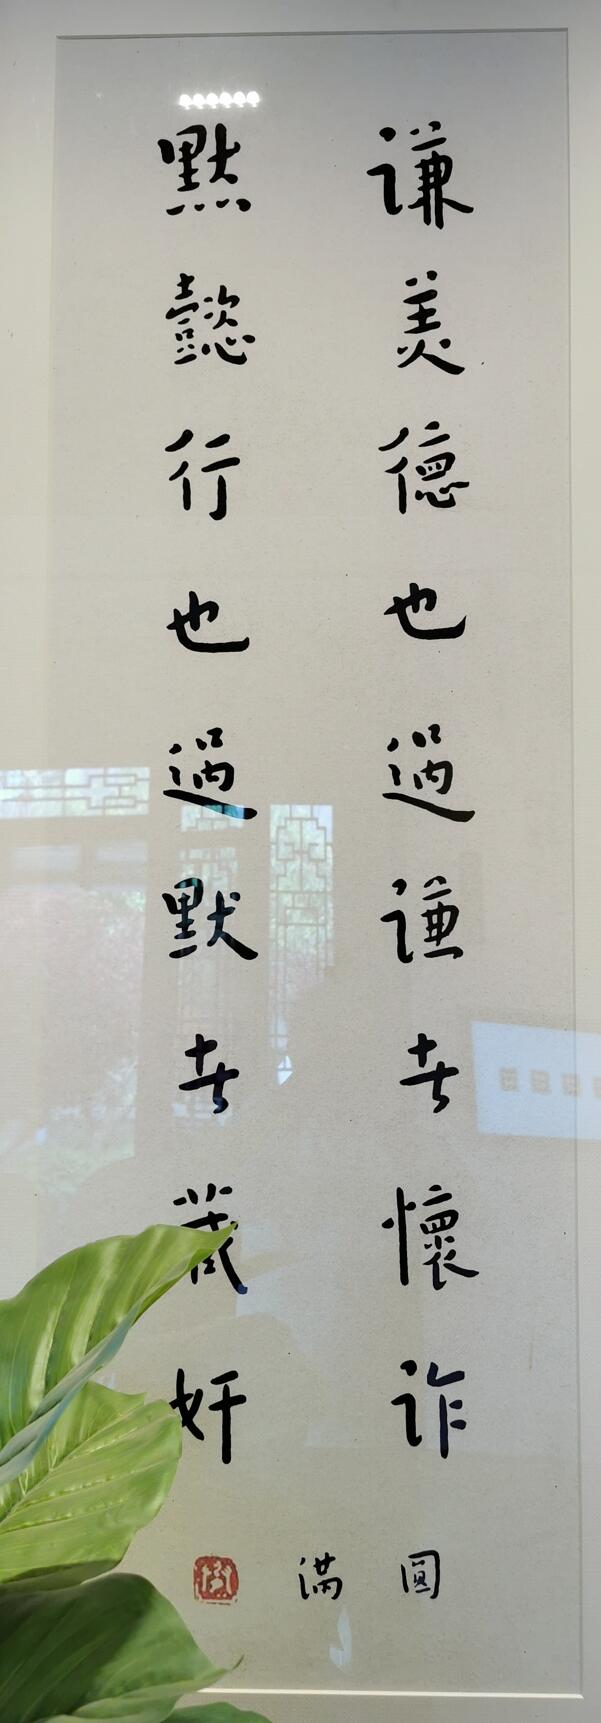 谦美德也過谦者懷诈
默懿行也過默者藏奸
圓满